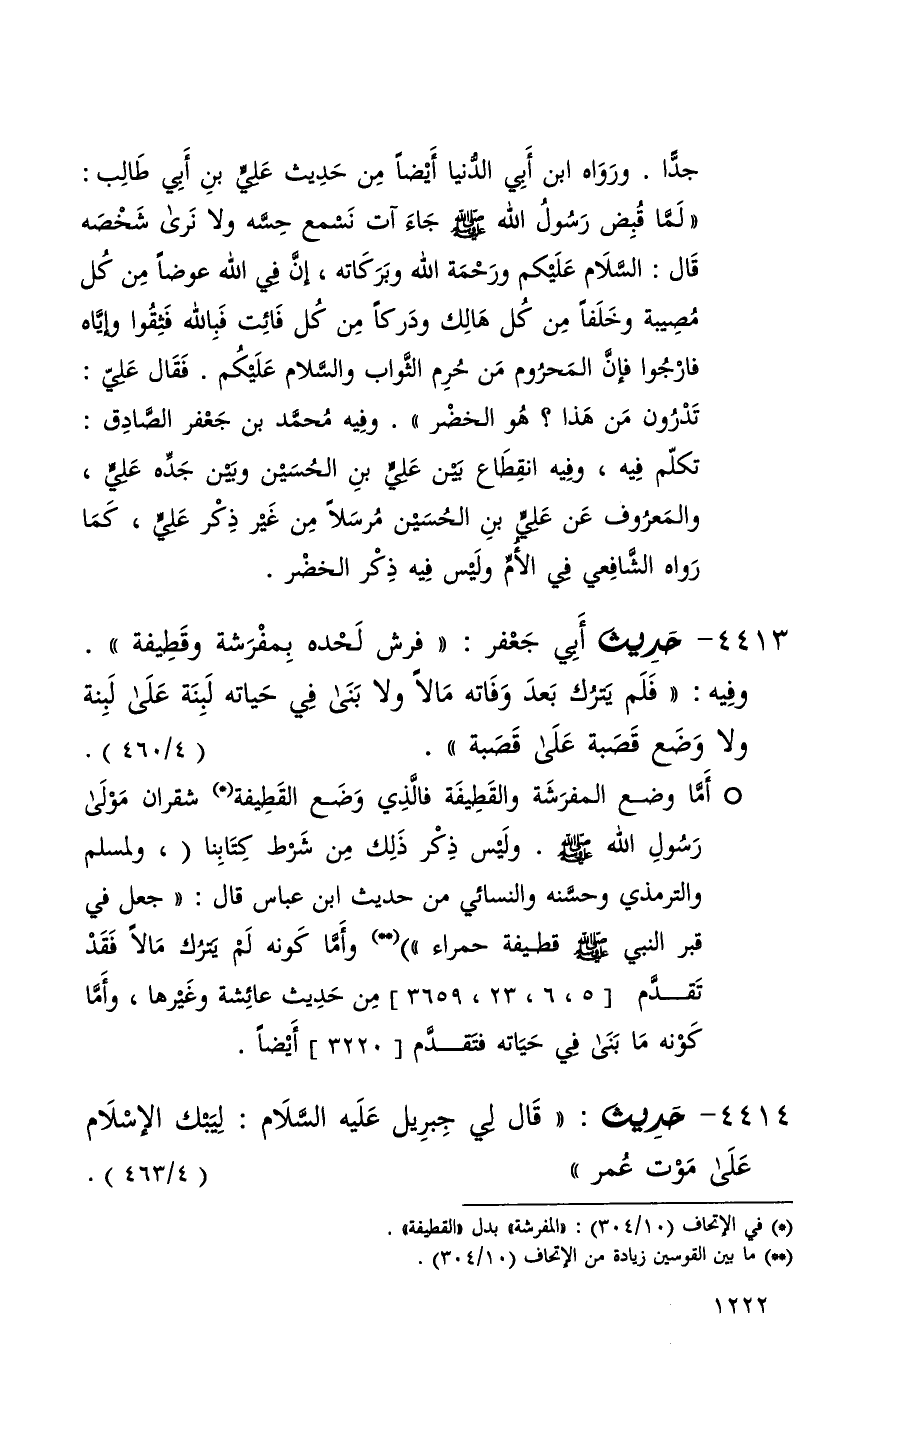 جدًّا . ورَوَاه ابن أَبِي الدُّنيا أَيْضاً مِن حَدِيث عَلِيٍّ بنِ أَبِي طَالِب :
« لَمَّا قُبِض رَسُولُ الله ﷺ جَاءَ آت نَسْمع حِسَّه ولا نَرىٰ شَخْصَه
قَال : السَّلَام عَلَيْكم ورَحْمَة الله وبَرَكَاته ، إنَّ فِي الله عوضاً مِن كُل
مُصِيبة وخَلَفاً مِن كُل هَالِك ودَركاً مِن كُل فَائِت فَبِالله فَثِقُوا وإيَّاه
فارْجُوا فإنَّ المَحرُوم مَن حُرِم الثَّواب والسَّلام عَلَيْكُم . فَقَال عَلِيّ :
تَدْرُون مَن هَذا ؟ هُو الخضْر » . وفِيه مُحمَّد بن جَعْفر الصَّادِق :
تكلّم فِيه ، وفِيه انقِطَاع بَيْن عَلِيٍّ بنِ الحُسَيْن وبَيْن جَدِّه عَلِيٍّ ،
والمَعرُوف عَن عَلِيٍّ بنِ الحُسَيْن مُرسَلاً مِن غَيْر ذِكْر عَلِيٍّ ، كَمَا
رَواه الشَّافِعي فِي الأُمِّ ولَيْس فِيه ذِكْر الخضْر .
٤٤١٣- حَدِيث أَبِي جَعْفر : « فرش لَحْده بِمفْرَشة وقَطِيفة » .
وفِيه : « فَلَم يَترُك بَعدَ وَفَاته مَالاً ولا بَنَىٰ فِي حَياته لَبِنَة عَلَىٰ لَبِنة
ولا وَضَع قَصَبة عَلَىٰ قَصَبة » . ( ٤٦٠/٤ ) .
○ أَمَّا وضـع المفرَشَة والقَطِيفَة فالَّذِي وَضَـع القَطِيفة(*) شقران مَوْلَىٰ
رَسُولِ الله ﷺ . ولَيْس ذِكْر ذَلِك مِن شَرْط كِتَابِنا ( ، ولمسلم
والترمذي وحسَّنه والنسائي من حديث ابن عباس قال : « جعل في
قبر النبي ﷺ قطـيفة حمراء »)(**) وأَمَّا كَونه لَمْ يَترُك مَالاً فَقَدْ
تَقـــدَّم [ ٥ ، ٦ ، ٢٣ ، ٣٦٥٩ ] مِن حَدِيث عائِشة وغَيْرها ، وأَمَّا
كَوْنه مَا بَنَىٰ فِي حَيَاته فتَقـــدَّم [ ٣٢٢٠ ] أَيْضاً .
٤٤١٤- حَدِيث : « قَال لِي جِبرِيل عَلَيه السَّلَام : لِيَبْك الإسْلَام
عَلَىٰ مَوْت عُمر » ( ٤٦٣/٤ ) .
(*) في الإتحاف (٣٠٤/١٠) : «المفرشة» بدل «القطيفة» .
(**) ما بين القوسين زيادة من الإتحاف (٣٠٤/١٠) .
١٢٢٢